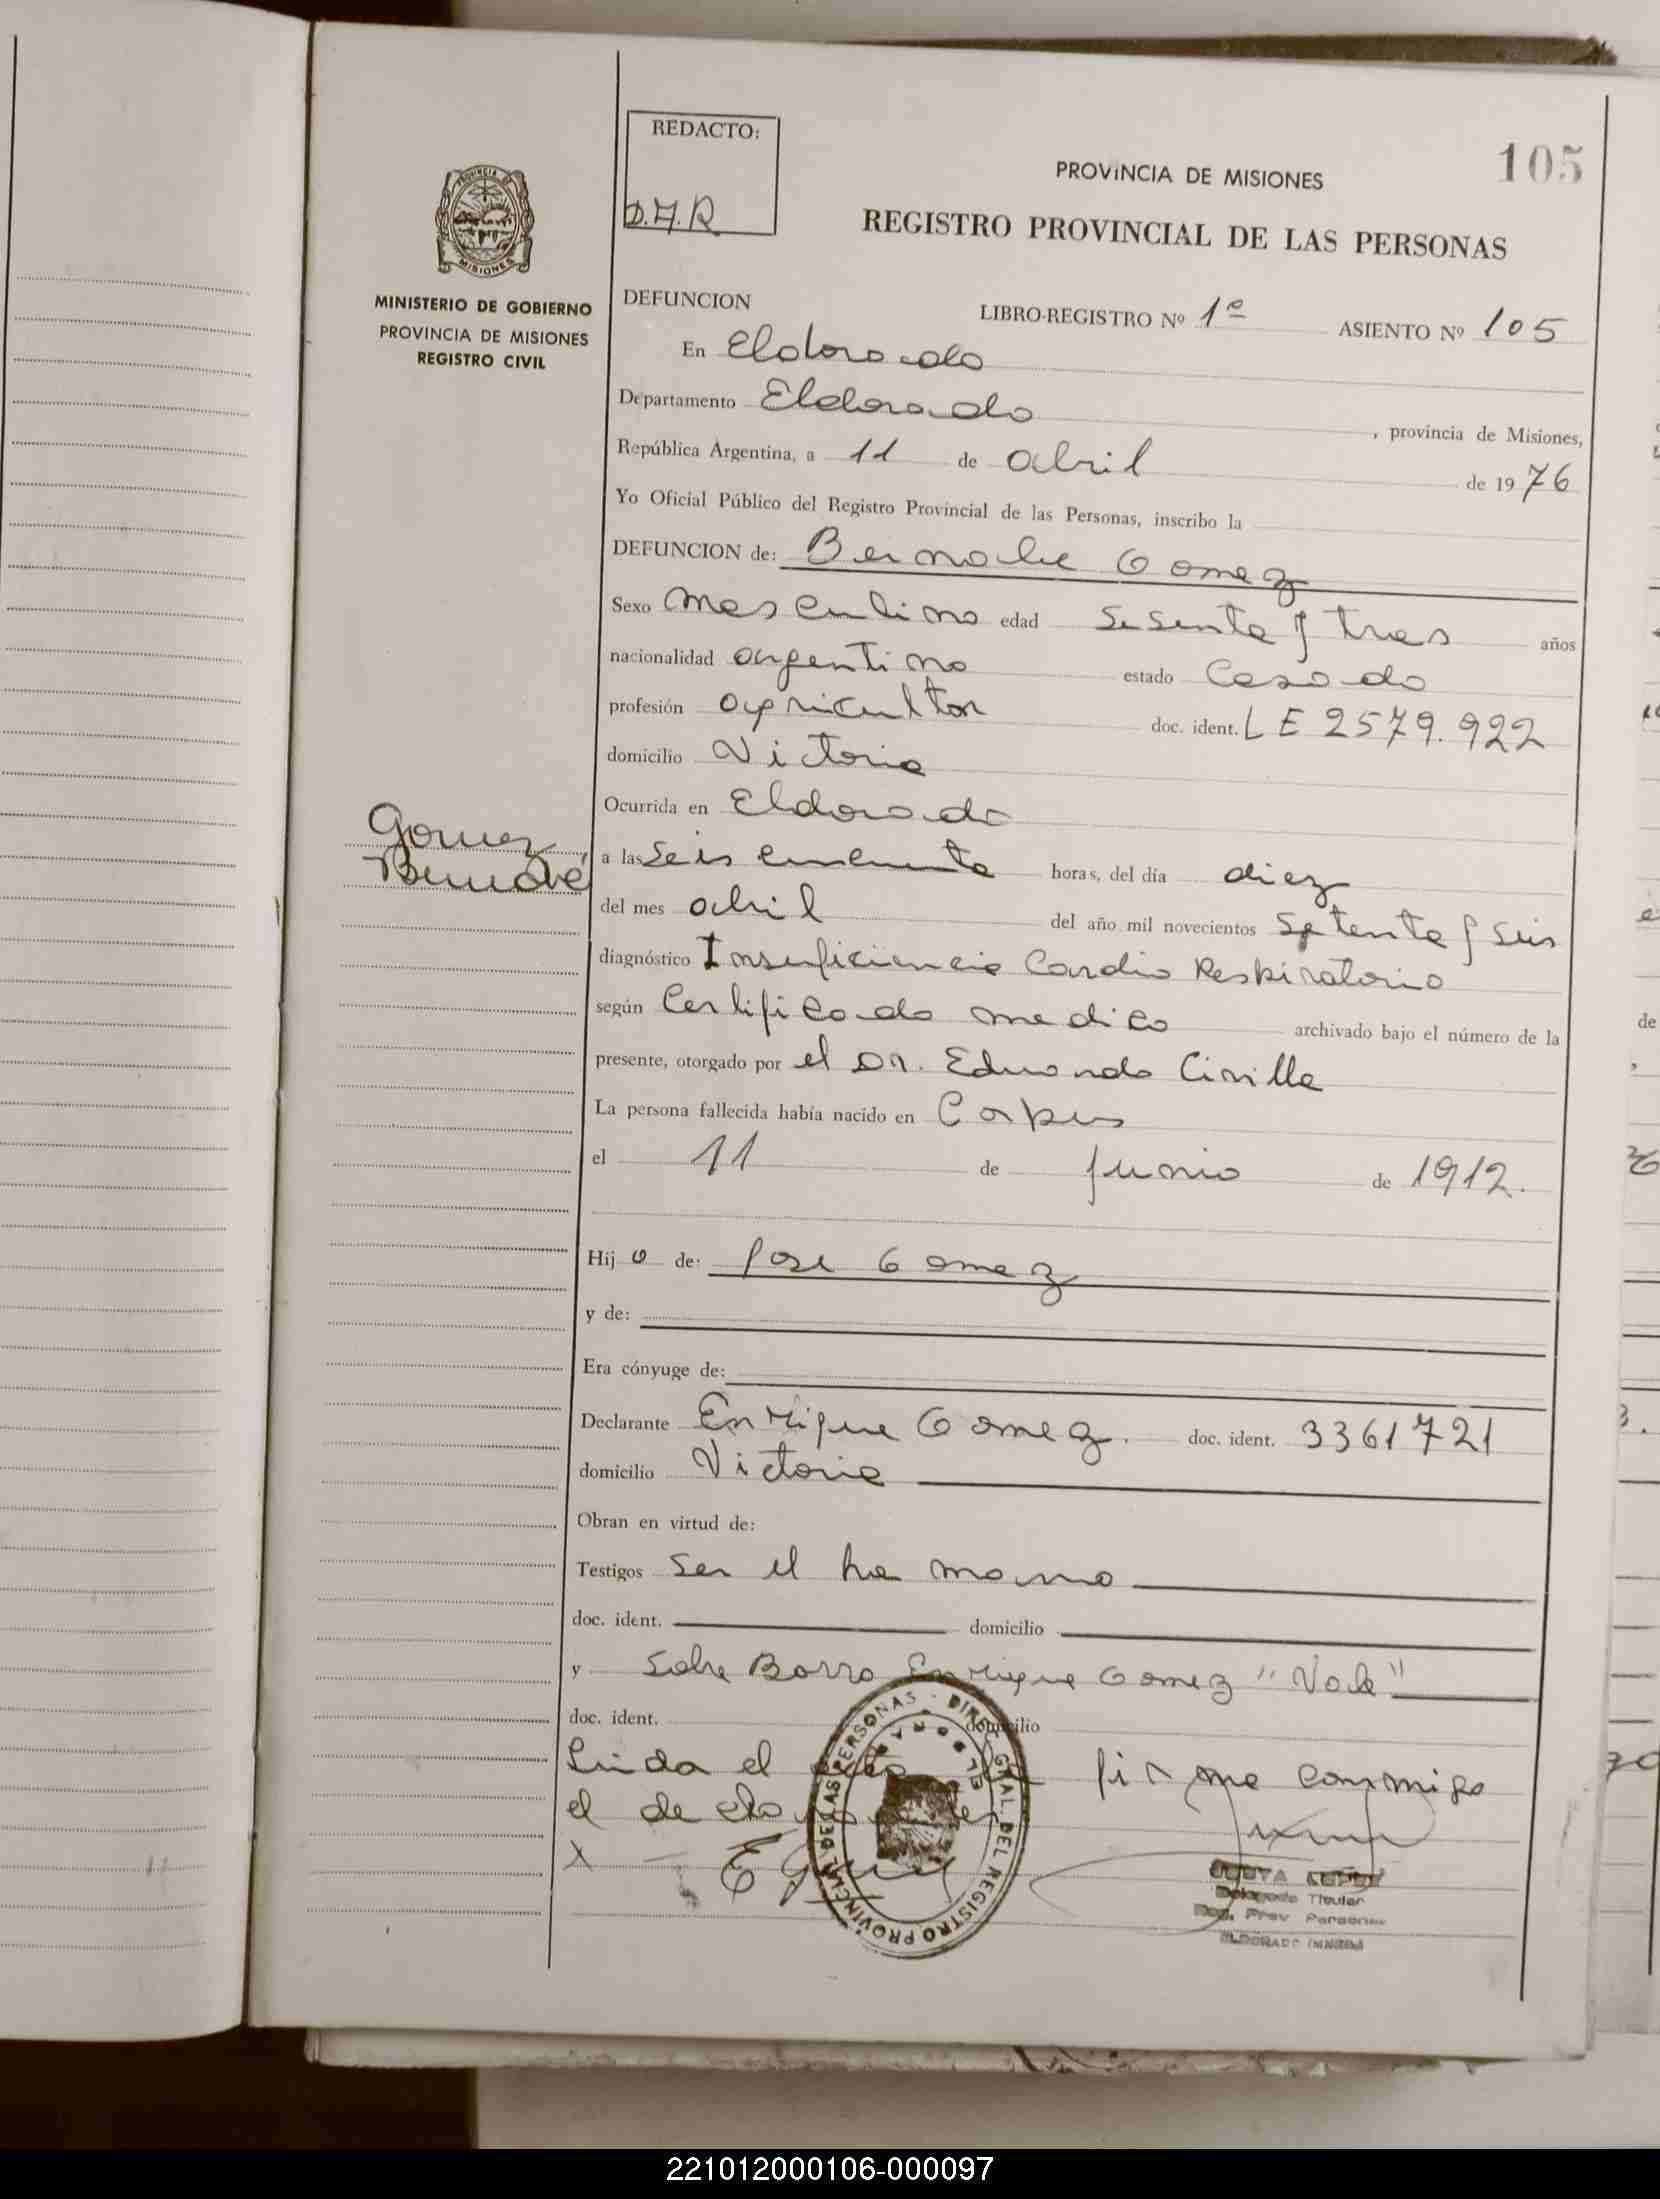 105
REDACTO:
D.J.R
PROVINCIA DE MISIONES
REGISTRO PROVINCIAL DE LAS PERSONAS
PROVINCIA DE
MISIONES
MINISTERIO DE GOBIERNO
PROVINCIA DE MISIONES
REGISTRO CIVIL
DEFUNCION LIBRO-REGISTRO Nº 1º ASIENTO Nº 105
En Eldorado
Departamento Eldorado, provincia de Misiones,
República Argentina, a 11 de abril de 1976
Yo Oficial Público del Registro Provincial de las Personas, inscribo la
DEFUNCION de: Bernabe Gomez
Sexo masculino edad Sesenta y tres años
nacionalidad argentino estado Casado
profesión agricultor doc. ident. LE 2579.922
domicilio Victoria
Ocurrida en Eldorado
Gomez
Bernabé
a las seis cincuenta horas, del día diez
del mes abril del año mil novecientos Setenta y seis
diagnóstico Insuficiencia Cardio Respiratorio
según Certificado medico archivado bajo el número de la
presente, otorgado por el Dr. Eduardo Cirilla
La persona fallecida había nacido en Corpus
el 11 de junio de 1912.
Hijo de: Jose Gomez
y de:
Era cónyuge de:
Declarante Enrique Gomez. doc. ident. 3361721
domicilio Victoria
Obran en virtud de:
Testigos ser el hermano
doc. ident. domicilio
y Sobre Borro Enrique Gomez "Vale"
doc. ident. domicilio
Leida el acta firma conmigo
el declarante
X E Gomez
DIREC. GRAL. DEL REGISTRO PROVINCIAL DE LAS PERSONAS
ELDORADO
LOPEZ
Delegado Titular
Reg. Prov Personas
ELDORADO
221012000106-000097